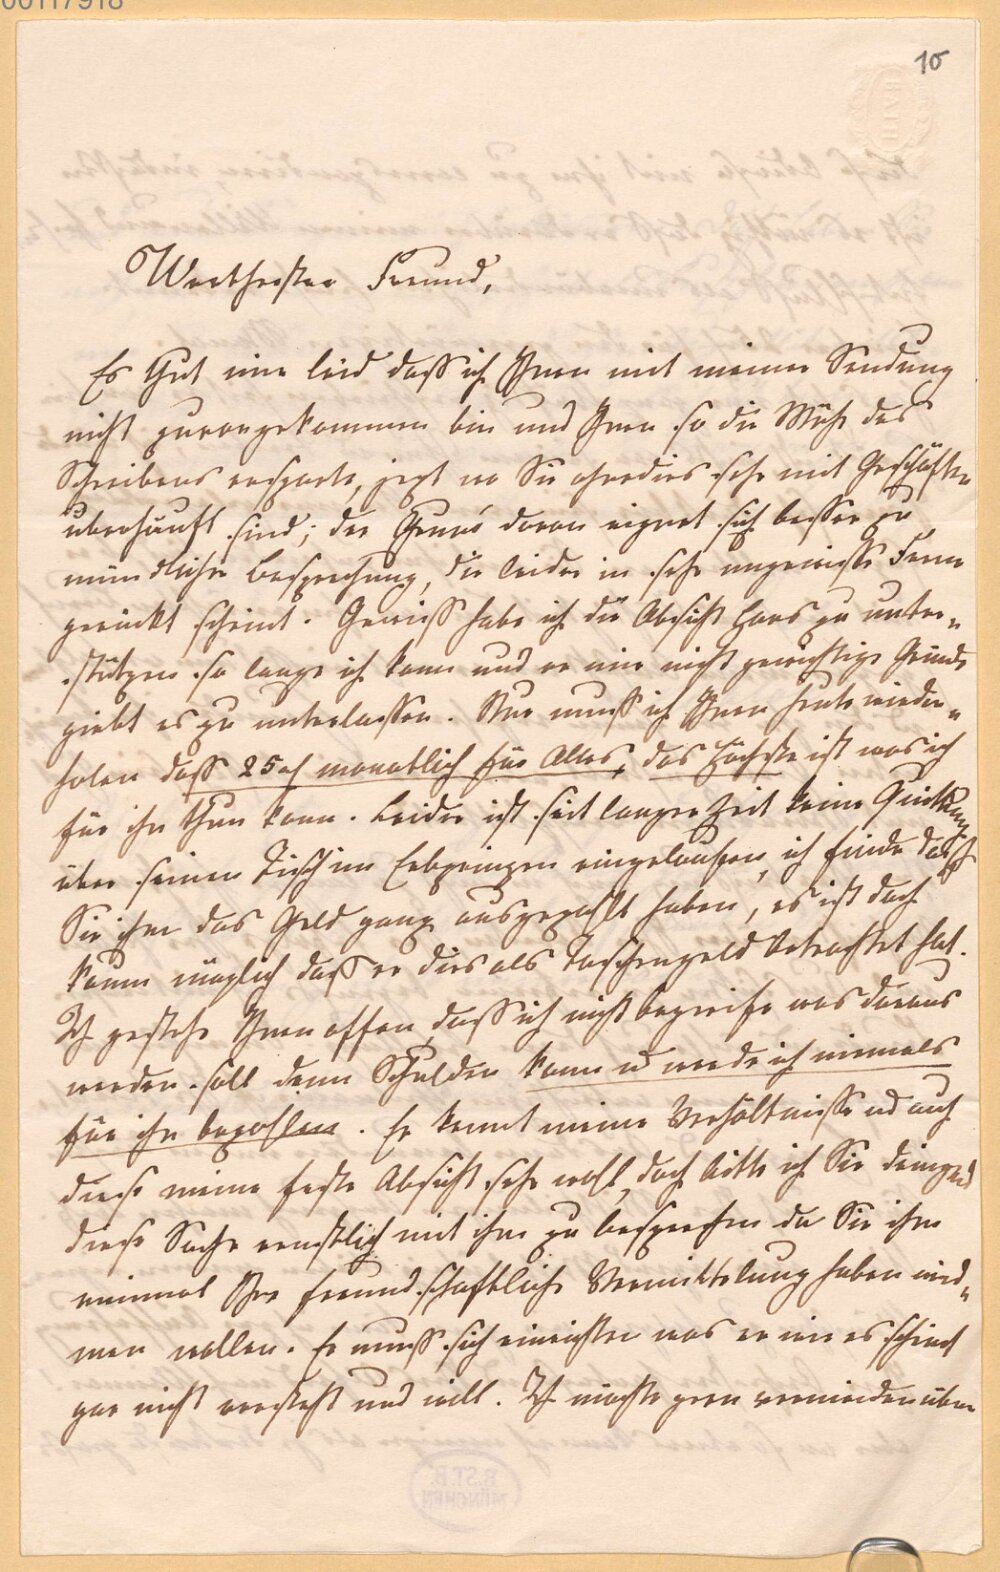 00117918
10
Werthester Freund,
Es thut mir leid dass ich Ihnen mit meiner Sendung
nicht zuvorgekommen bin und Ihnen so die Mühe des
Schreibens ersparte, jezt wo Sie ohnedies sehr mit Geschäften
überhäuft sind; der Grund davon eignet sich besser zu
mündlicher Besprechung, die leider in sehr ungewisse Ferne
gerückt scheint. Gewiss habe ich die Absicht Hans zu unter-
stützen so lange ich kann und er mir nicht gewichtige Gründe
giebt es zu unterlassen. Nur muss ich Ihnen heute wieder-
holen dass 25 f monatlich für Alles, das Höchste ist was ich
für ihn thun kann. Leider ist seit langer Zeit keine Quittung
über seinen Tisch im Erbprinzen eingelaufen, ich finde dass
Sie ihm das Geld ganz ausgezahlt haben, es ist doch
kaum möglich dass er dies als Taschengeld betrachtet hat.
Ich gestehe Ihnen offen dass ich nicht begreife was daraus
werden soll denn Schulden kann u werde ich niemals
für ihn bezahlen. Er kennt meine Verhältnisse ud auch
diese meine feste Absicht sehr wohl, doch bitte ich Sie dringend
diese Sache ernstlich mit ihm zu besprechen da Sie ihm
einmal Ihre freundschaftliche Vermittelung haben wid-
men wollen. Er muss sich einrichten was er wie es scheint
gar nicht versteht und will. Ich möchte gern vermeiden über
B.ST.B.
MÜNCHEN